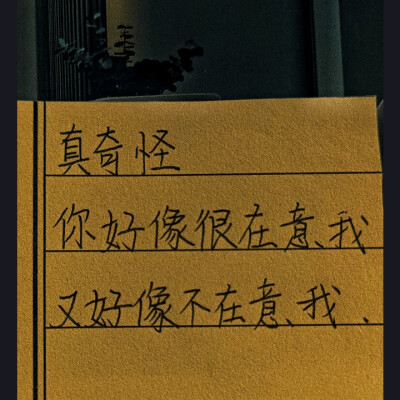 真奇怪
你好像很在意我
又好像不在意我.